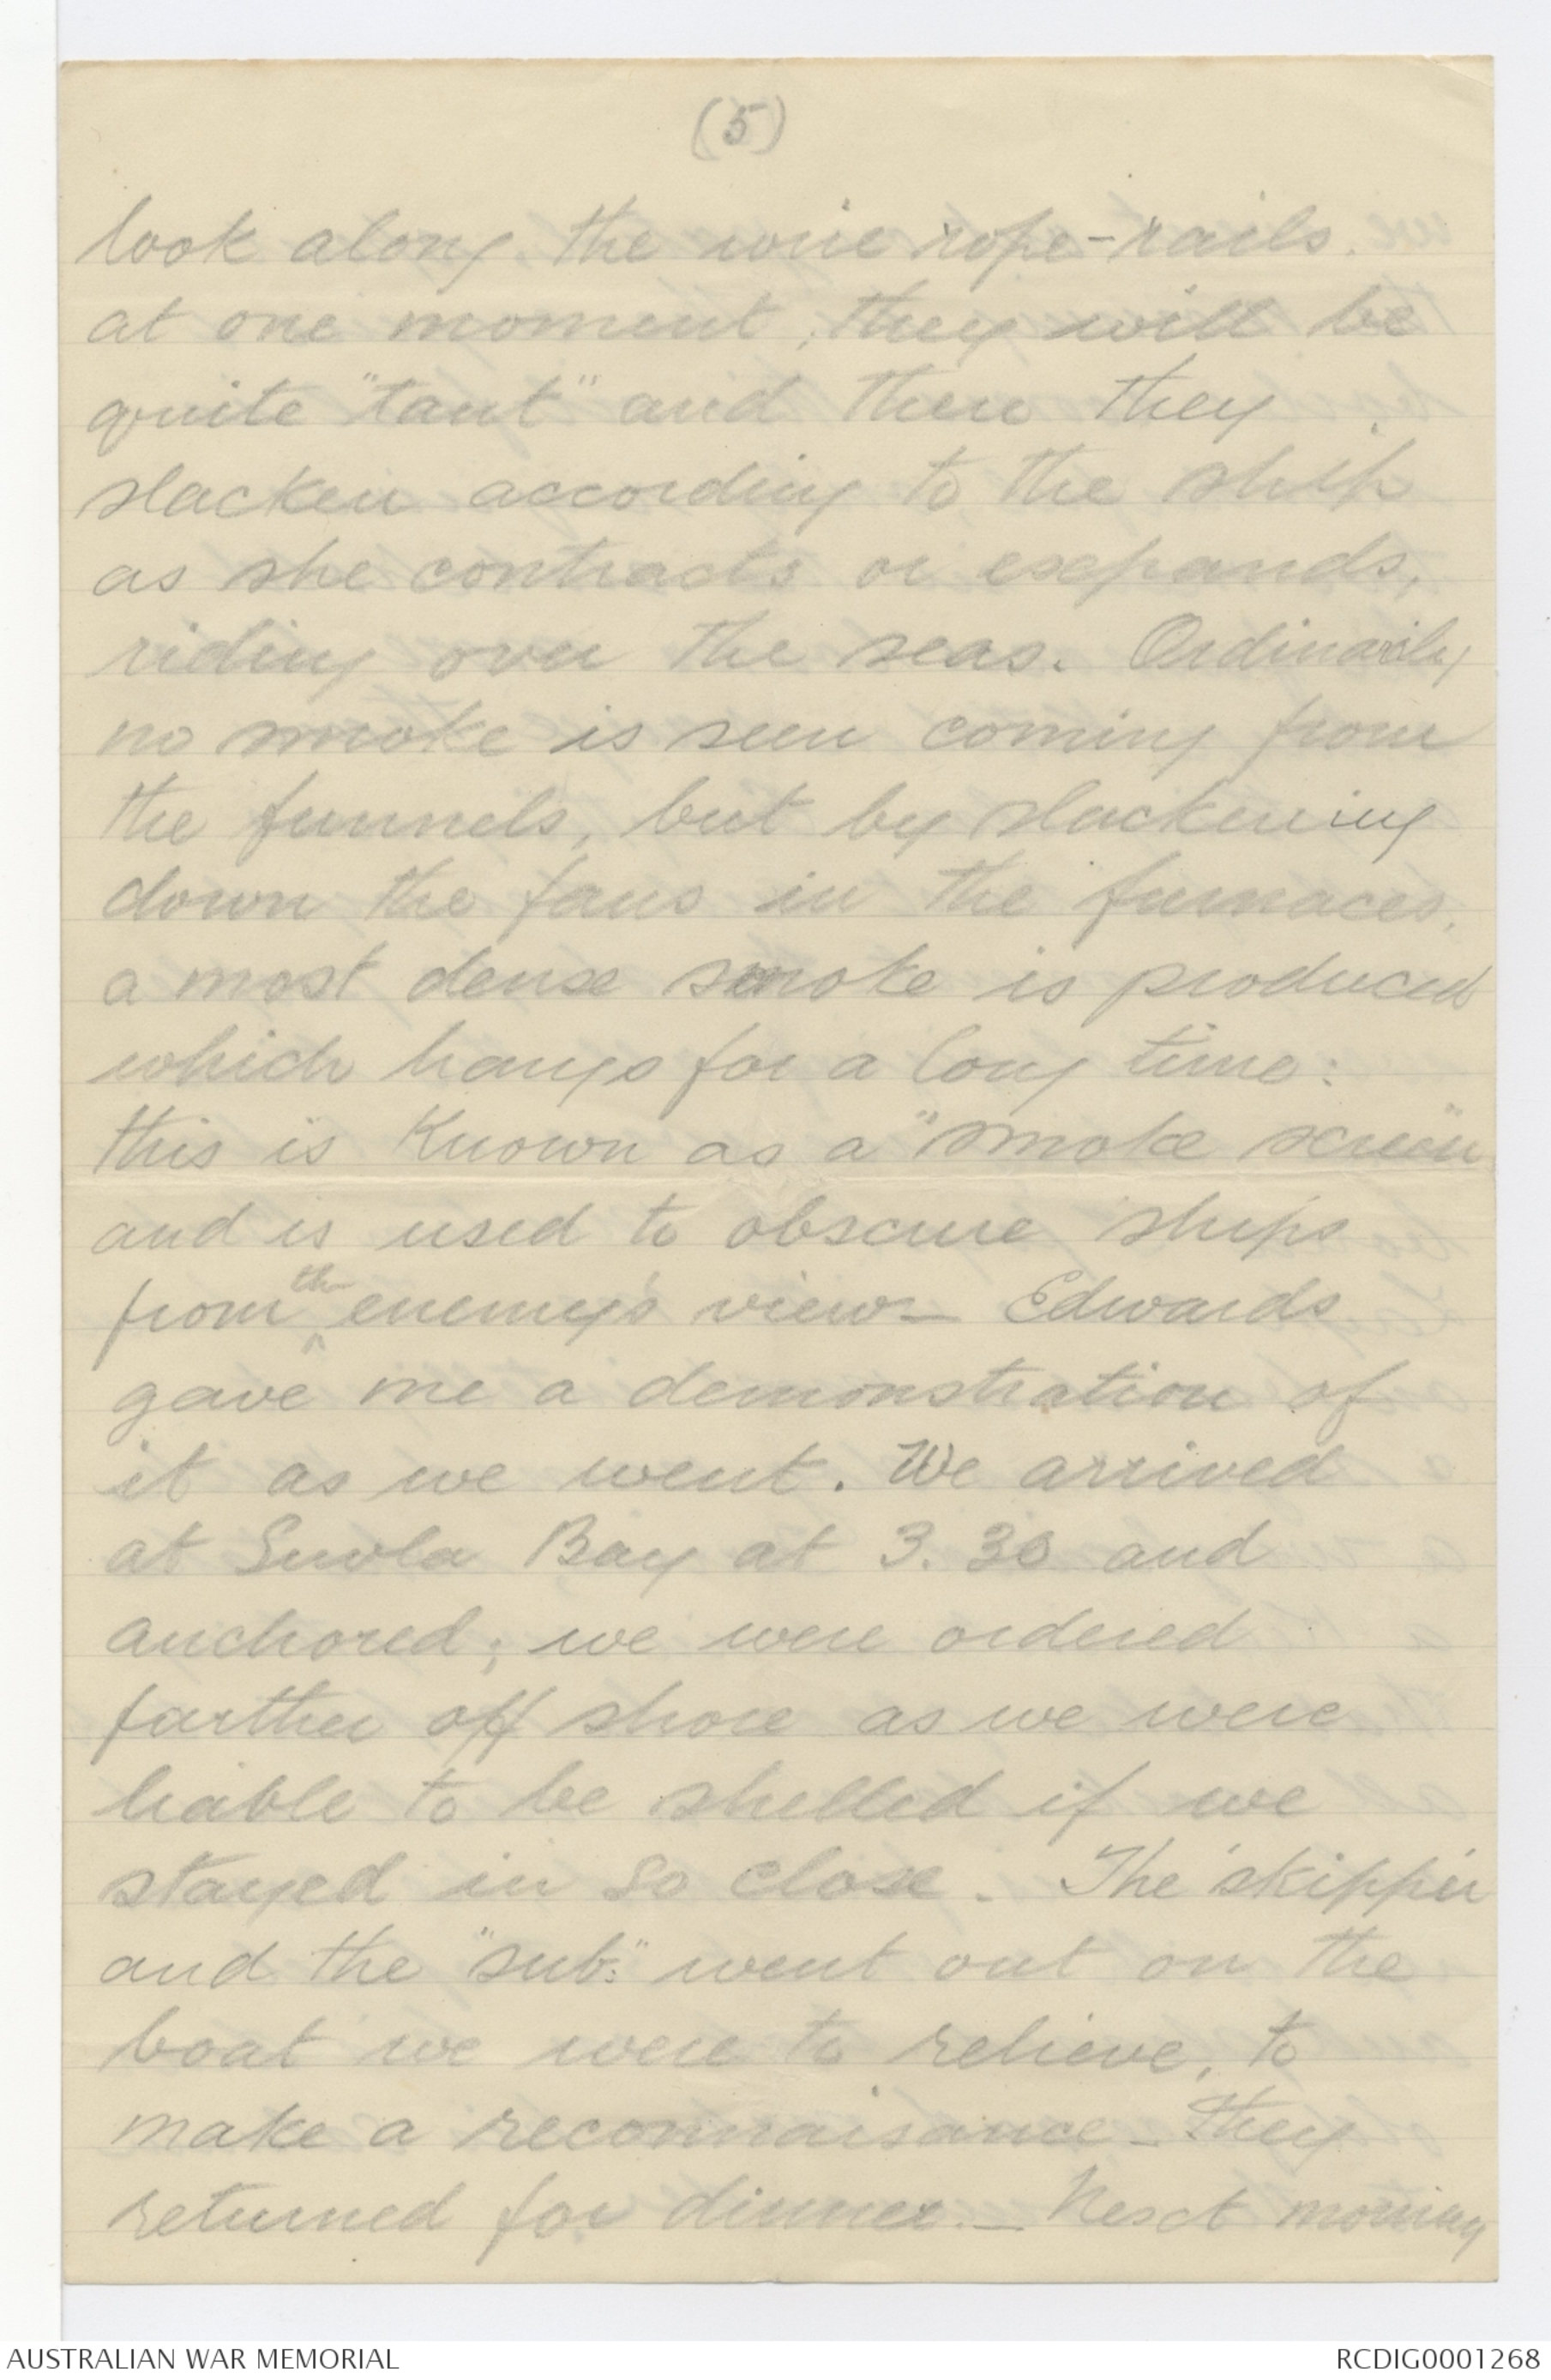 (5)
look along the wire rope-rails.
at one moment, they will be
quite "taut" and then they
slacken according to the ship
as she contracts or expands,
riding over the seas. Ordinarily
no smoke is seen coming from
the funnels, but by slackening
down the fans in the furnaces,
a most dense smoke is produced
which hangs for a long time:
this is known as a "smoke screen"
and is used to obscure ships
from the enemy's view – Edwards
gave me a demonstration of
it as we went. We arrived
at Suvla Bay at 3.30 and
anchored; we were ordered
further off shore as we were
liable to be shelled if we
stayed in so close. The 'skipper'
and the "sub." went out on the
boat we were to relieve, to
make a reconnaisance – they
returned for dinner. – Next morning
AUSTRALIAN WAR MEMORIAL
RCDIG0001268